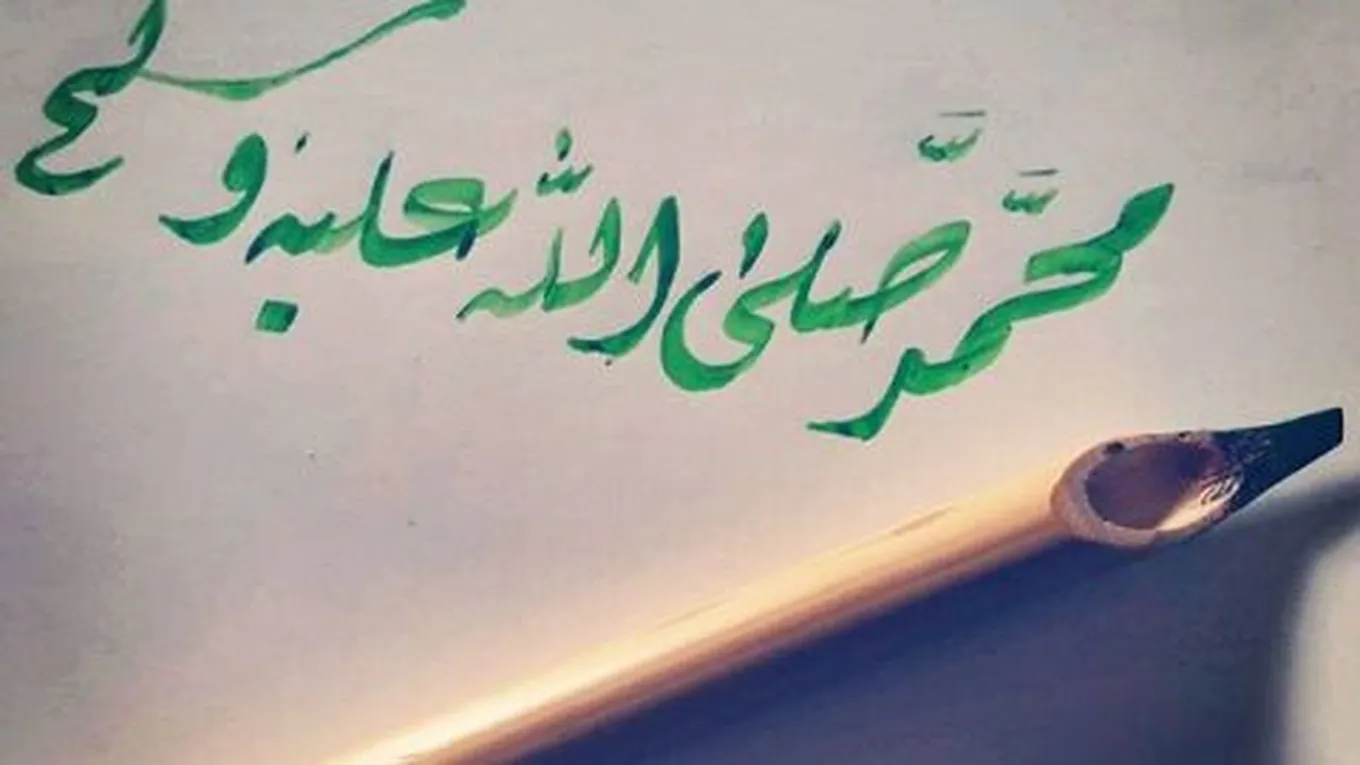 محمّد صلى الله عليه وسلم